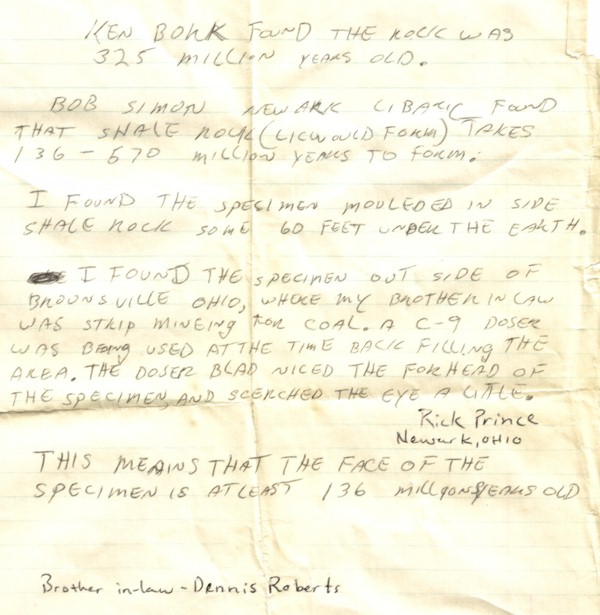 KEN BORK FOUND THE ROCK WAS
325 MILLION YEARS OLD.
BOB SIMON NEWARK LIBARIC FOUND
THAT SHALE ROCK (LICWOULD FORM) TAKES
136 - 570 MILLION YEARS TO FORM.
I FOUND THE SPECIMEN MOULEDED IN SIDE
SHALE ROCK SOME 60 FEET UNDER THE EARTH.
I FOUND THE SPECIMEN OUT SIDE OF
BROUNSVILLE OHIO, WHERE MY BROTHER IN LAW
WAS STRIP MINEING FOR COAL. A C-9 DOSER
WAS BEING USED AT THE TIME BACK FILLING THE
AREA. THE DOSER BLAD NICED THE FORHEAD OF
THE SPECIMEN, AND SCERCHED THE EYE A LITLE.
Rick Prince
Newark, OHIO
THIS MEANS THAT THE FACE OF THE
SPECIMEN IS ATLEAST 136 MILLION YEARS OLD
Brother in-law - Dennis Roberts